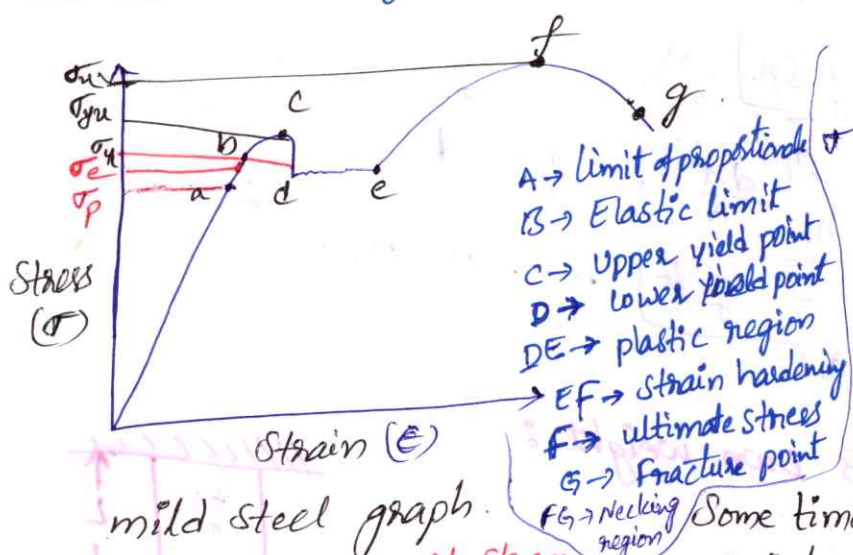 f
σu
σyu
c
g
σy
b
σe
σp
a
d
e
Stress
(σ)
Strain (E)
A → limit of proportionale
B → Elastic limit
C → upper yield point
D → lower yield point
DE → plastic region
EF → strain hardening
F → ultimate stress
G → Fracture point
FG → Necking
region
mild steel graph.
Some time